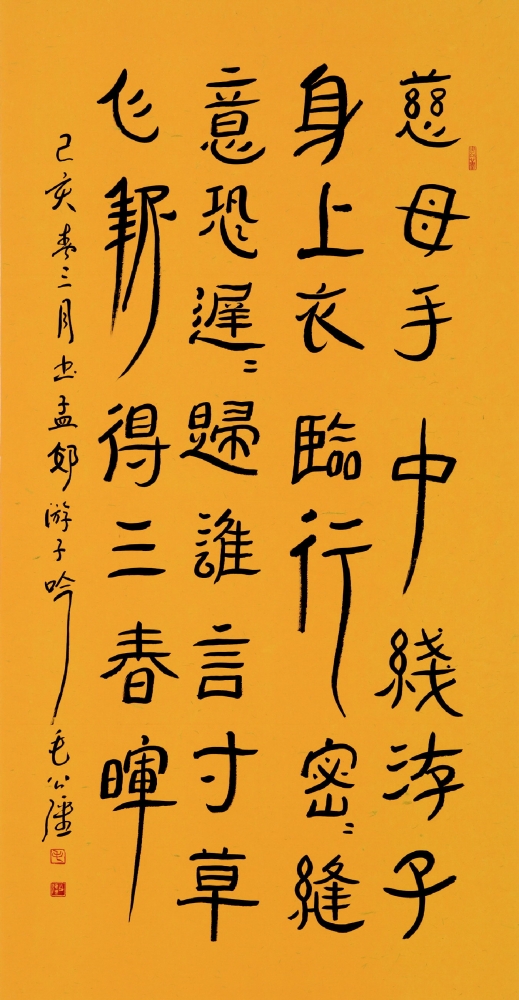 慈母手中綫游子
身上衣臨行密〻縫
意恐遲〻歸誰言寸草
心報得三春暉
己亥春三月书孟郊游子吟 毛公彊